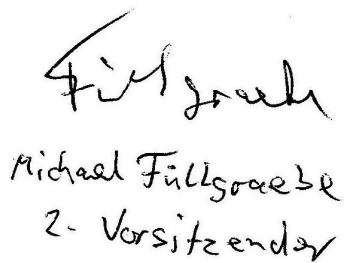 Füllgraebe
Michael Füllgraebe
2. Vorsitzender